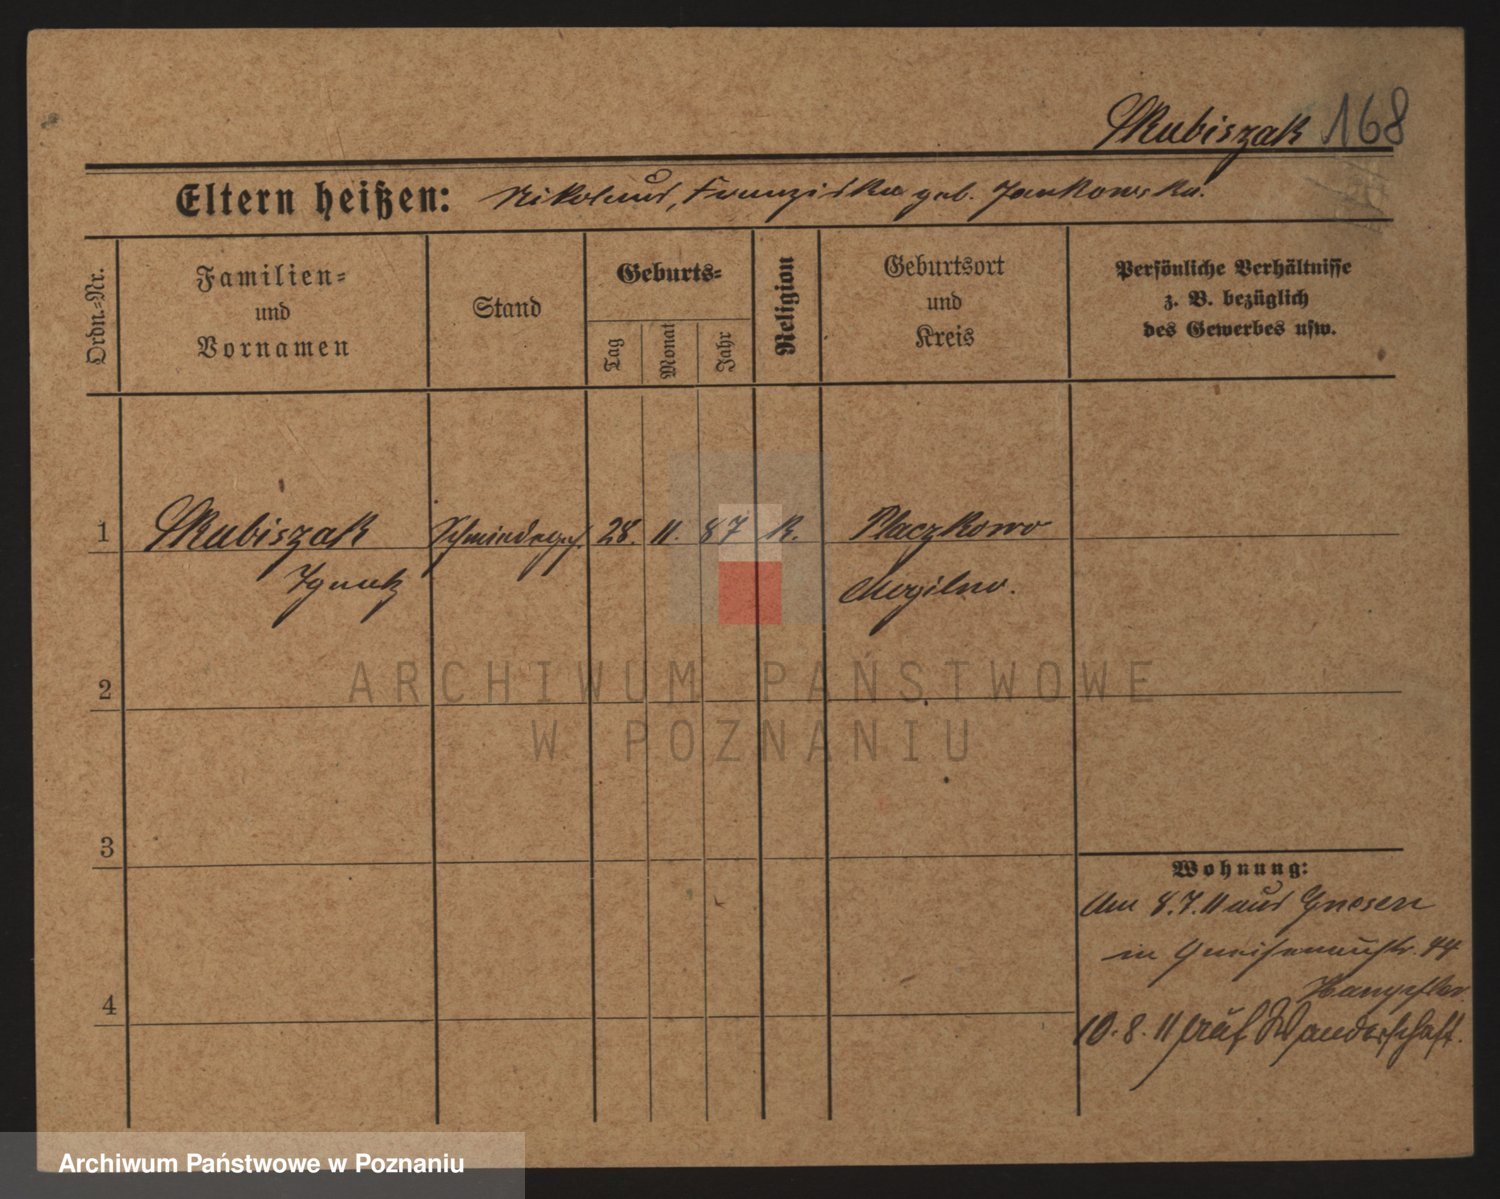 Skubiszak 168
Eltern heißen: Nikolaus, Franziska geb. Jankowska.
Ordn.-Nr.
Familien-
und
Vornamen
Stand
Geburts-
Tag
Monat
Jahr
Religion
Geburtsort
und
Kreis
Persönliche Verhältnisse
z. B. bezüglich
des Gewerbes usw.
1 Skubiszak Schmiedeges. 28. 11. 87 K. Placzkowo
Ignatz Mogilno.
2
ARCHIWUM PAŃSTWOWE
W POZNANIU
3
Wohnung:
Am 8.7.11 aus Gnesen
in Gneisenaustr. 44
4
10.8.11 auf Wanderschaft.
Archiwum Państwowe w Poznaniu